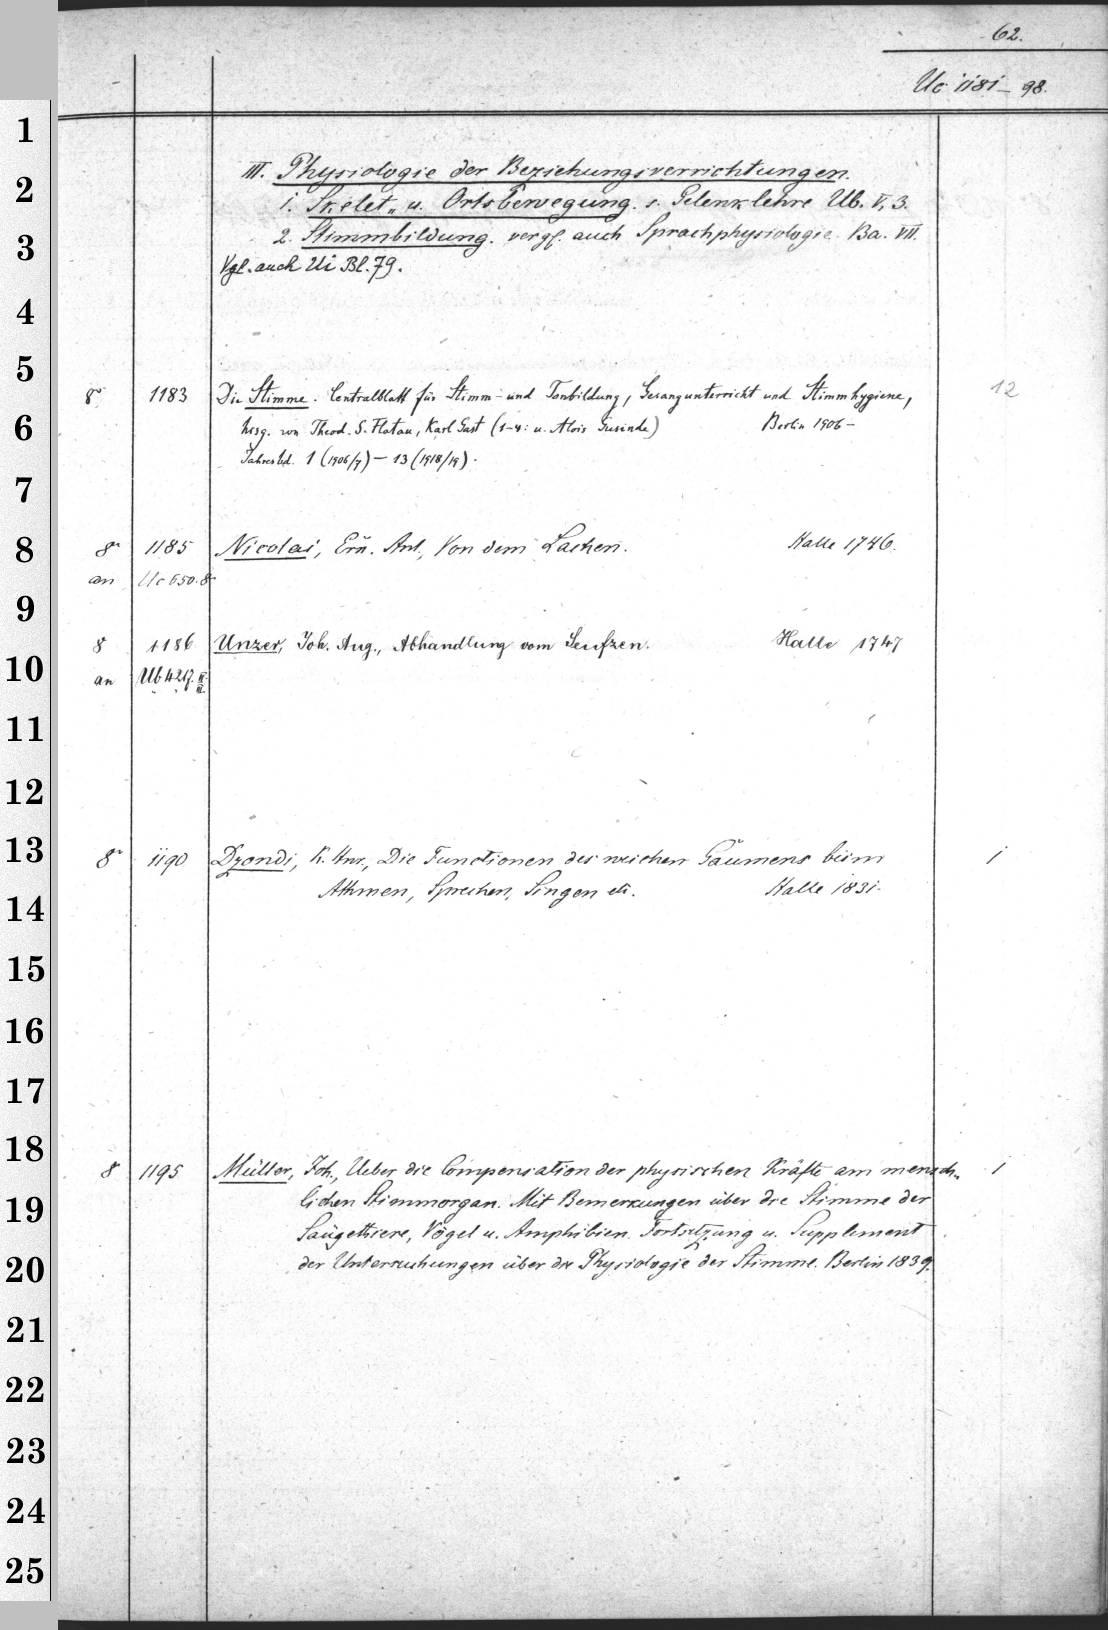 62.
Uc 1181 - 98.
III. Physiologie der Beziehungsverrichtungen.
1. Skelet- u. Ortsbewegung. s. Gelenklehre Ub. V, 3.
2. Stimmbildung. vergl. auch Sprachphysiologie. Ba. VII.
Vgl. auch Ui Bl. 79.
8° 1183 Die Stimme. Centralblatt für Stimm- und Tonbildung, Gesangunterricht und Stimmhygiene, 12
hrsg. von Theod. S. Flatau, Karl Gast (1-4: u. Alois Gusinde) Berlin 1906 -
Jahresbd. 1 (1906/7) - 13 (1918/19).
8° 1185 Nicolai, Ern. Ant., Von dem Lachen. Halle 1746.
an Uc 650. 8°
8 1186 Unzer, Joh. Aug., Abhandlung vom Seufzen. Halle 1747
an Ub 427. II
III.
8° 1190 Dzondi, K. Hnr., Die Functionen des weichen Gaumens beim 1
Athmen, Sprechen, Singen etc. Halle 1831.
8 1195 Müller, Joh., Ueber die Compensation der physischen Kräfte am mensch- 1
lichen Stimmorgan. Mit Bemerkungen über die Stimme der
Säugethiere, Vögel u. Amphibien. Fortsetzung u. Supplement
der Untersuchungen über die Physiologie der Stimme. Berlin 1839.
1
2
3
4
5
6
7
8
9
10
11
12
13
14
15
16
17
18
19
20
21
22
23
24
25